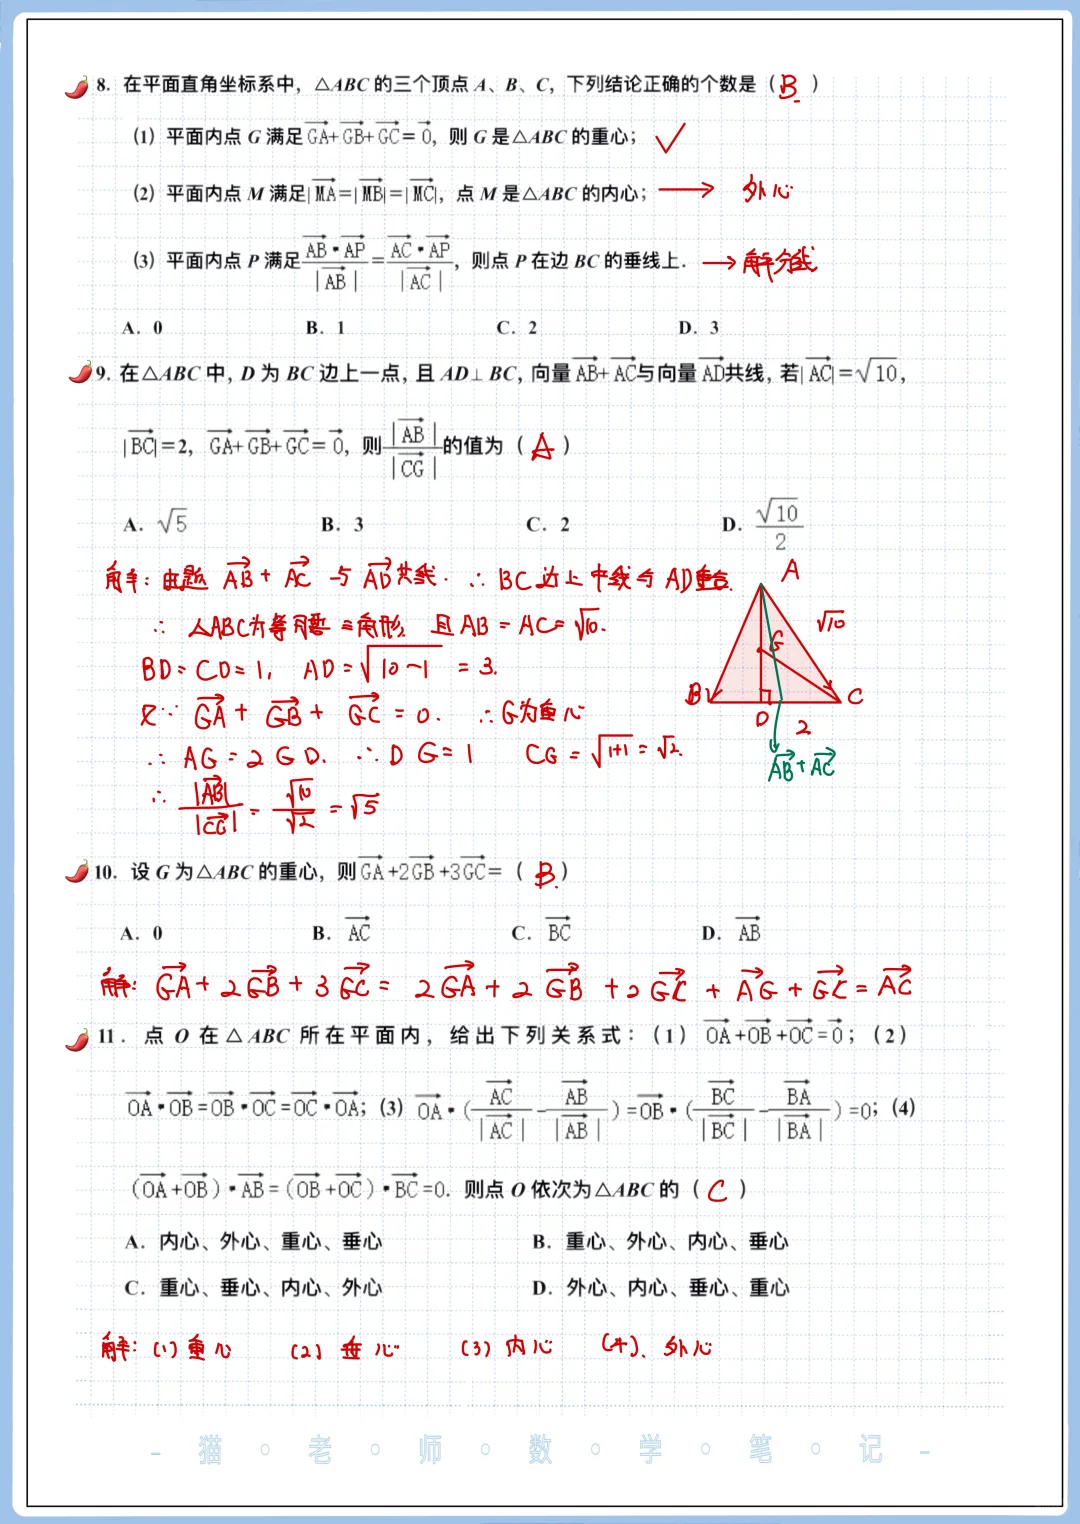 8. 在平面直角坐标系中，△ABC 的三个顶点 A、B、C，下列结论正确的个数是（ B ）
(1) 平面内点 G 满足$\overrightarrow{GA}+\overrightarrow{GB}+\overrightarrow{GC}=\overrightarrow{0}$，则 G 是△ABC 的重心； ✓
(2) 平面内点 M 满足$|\overrightarrow{MA}|=|\overrightarrow{MB}|=|\overrightarrow{MC}|$，点 M 是△ABC 的内心； → 外心
(3) 平面内点 P 满足$\frac{\overrightarrow{AB}\cdot\overrightarrow{AP}}{|\overrightarrow{AB}|}=\frac{\overrightarrow{AC}\cdot\overrightarrow{AP}}{|\overrightarrow{AC}|}$，则点 P 在边 BC 的垂线上． → 角平分线
A．0 B．1 C．2 D．3
9. 在△ABC 中，D 为 BC 边上一点，且 AD⊥BC，向量$\overrightarrow{AB}+\overrightarrow{AC}$与向量$\overrightarrow{AD}$共线，若$|\overrightarrow{AC}|=\sqrt{10}$，
$|\overrightarrow{BC}|=2$，$\overrightarrow{GA}+\overrightarrow{GB}+\overrightarrow{GC}=\overrightarrow{0}$，则$\frac{|\overrightarrow{AB}|}{|\overrightarrow{CG}|}$的值为（ A ）
A．$\sqrt{5}$ B．3 C．2 D．$\frac{\sqrt{10}}{2}$
解：由题 $\overrightarrow{AB}+\overrightarrow{AC}$ 与 $\overrightarrow{AD}$ 共线．∴ BC 边上中线与 AD重合．
∴ △ABC为等腰三角形，且 AB = AC = $\sqrt{10}$．
BD = CD = 1， AD = $\sqrt{10-1}$ = 3．
又∵ $\overrightarrow{GA}+\overrightarrow{GB}+\overrightarrow{GC}=0$． ∴G为重心
∴ AG = 2GD． ∴DG = 1 CG = $\sqrt{1+1}=\sqrt{2}$．
∴ $\frac{|\overrightarrow{AB}|}{|\overrightarrow{CG}|}=\frac{\sqrt{10}}{\sqrt{2}}=\sqrt{5}$
A
$\sqrt{10}$
G
B
C
D
2
$\overrightarrow{AB}+\overrightarrow{AC}$
10. 设 G 为△ABC 的重心，则$\overrightarrow{GA}+2\overrightarrow{GB}+3\overrightarrow{GC}=$（ B ）
A．0 B．$\overrightarrow{AC}$ C．$\overrightarrow{BC}$ D．$\overrightarrow{AB}$
解：$\overrightarrow{GA}+2\overrightarrow{GB}+3\overrightarrow{GC}=2\overrightarrow{GA}+2\overrightarrow{GB}+2\overrightarrow{GC}+\overrightarrow{AG}+\overrightarrow{GC}=\overrightarrow{AC}$
11. 点 O 在△ABC 所在平面内，给出下列关系式：(1) $\overrightarrow{OA}+\overrightarrow{OB}+\overrightarrow{OC}=\overrightarrow{0}$；(2)
$\overrightarrow{OA}\cdot\overrightarrow{OB}=\overrightarrow{OB}\cdot\overrightarrow{OC}=\overrightarrow{OC}\cdot\overrightarrow{OA}$；(3) $\overrightarrow{OA}\cdot(\frac{\overrightarrow{AC}}{|\overrightarrow{AC}|}-\frac{\overrightarrow{AB}}{|\overrightarrow{AB}|})=\overrightarrow{OB}\cdot(\frac{\overrightarrow{BC}}{|\overrightarrow{BC}|}-\frac{\overrightarrow{BA}}{|\overrightarrow{BA}|})=0$；(4)
$(\overrightarrow{OA}+\overrightarrow{OB})\cdot\overrightarrow{AB}=(\overrightarrow{OB}+\overrightarrow{OC})\cdot\overrightarrow{BC}=0$．则点 O 依次为△ABC 的（ C ）
A．内心、外心、重心、垂心 B．重心、外心、内心、垂心
C．重心、垂心、内心、外心 D．外心、内心、垂心、重心
解：(1) 重心 (2) 垂心 (3) 内心 (4)．外心
- 猫 · 老 · 师 · 数 · 学 · 笔 · 记 -